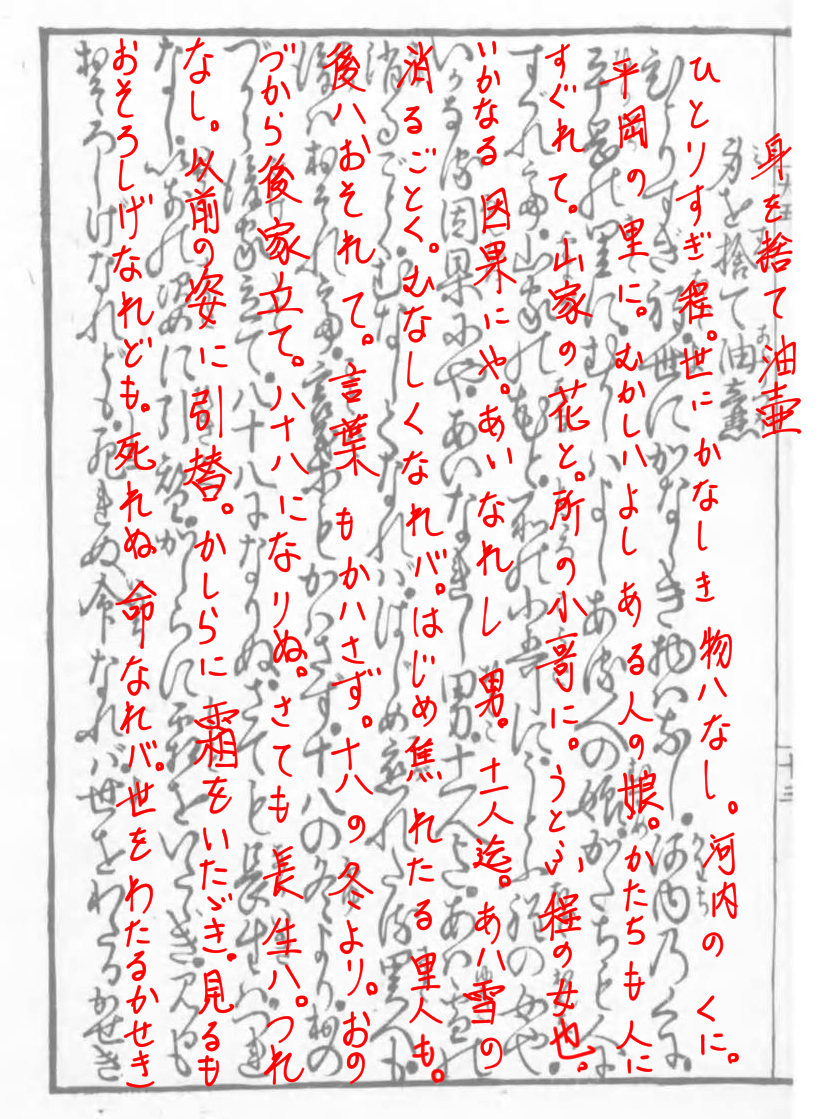 身を捨て油壷
ひとりすぎ程。世にかなしき物ハなし。河内のくに。
平岡の里に。むかしハよしある人の娘。かたちも人に
すぐれて。山家の花と。所の小哥に。うとふ程の女也。
いかなる因果にや。あいなれし男。十一人迄。あハ雪の
消るごとく。むなしくなれバ。はじめ焦れたる里人も。
後ハおそれて。言葉もかハさず。十八の冬より。おの
づから後家立て。八十八になりぬ。さても長生ハ。つれ
なし。以前の姿に引替。かしらに霜をいたゞき。見るも
おそろしげなれども。死れぬ命なれバ。世をわたるかせき